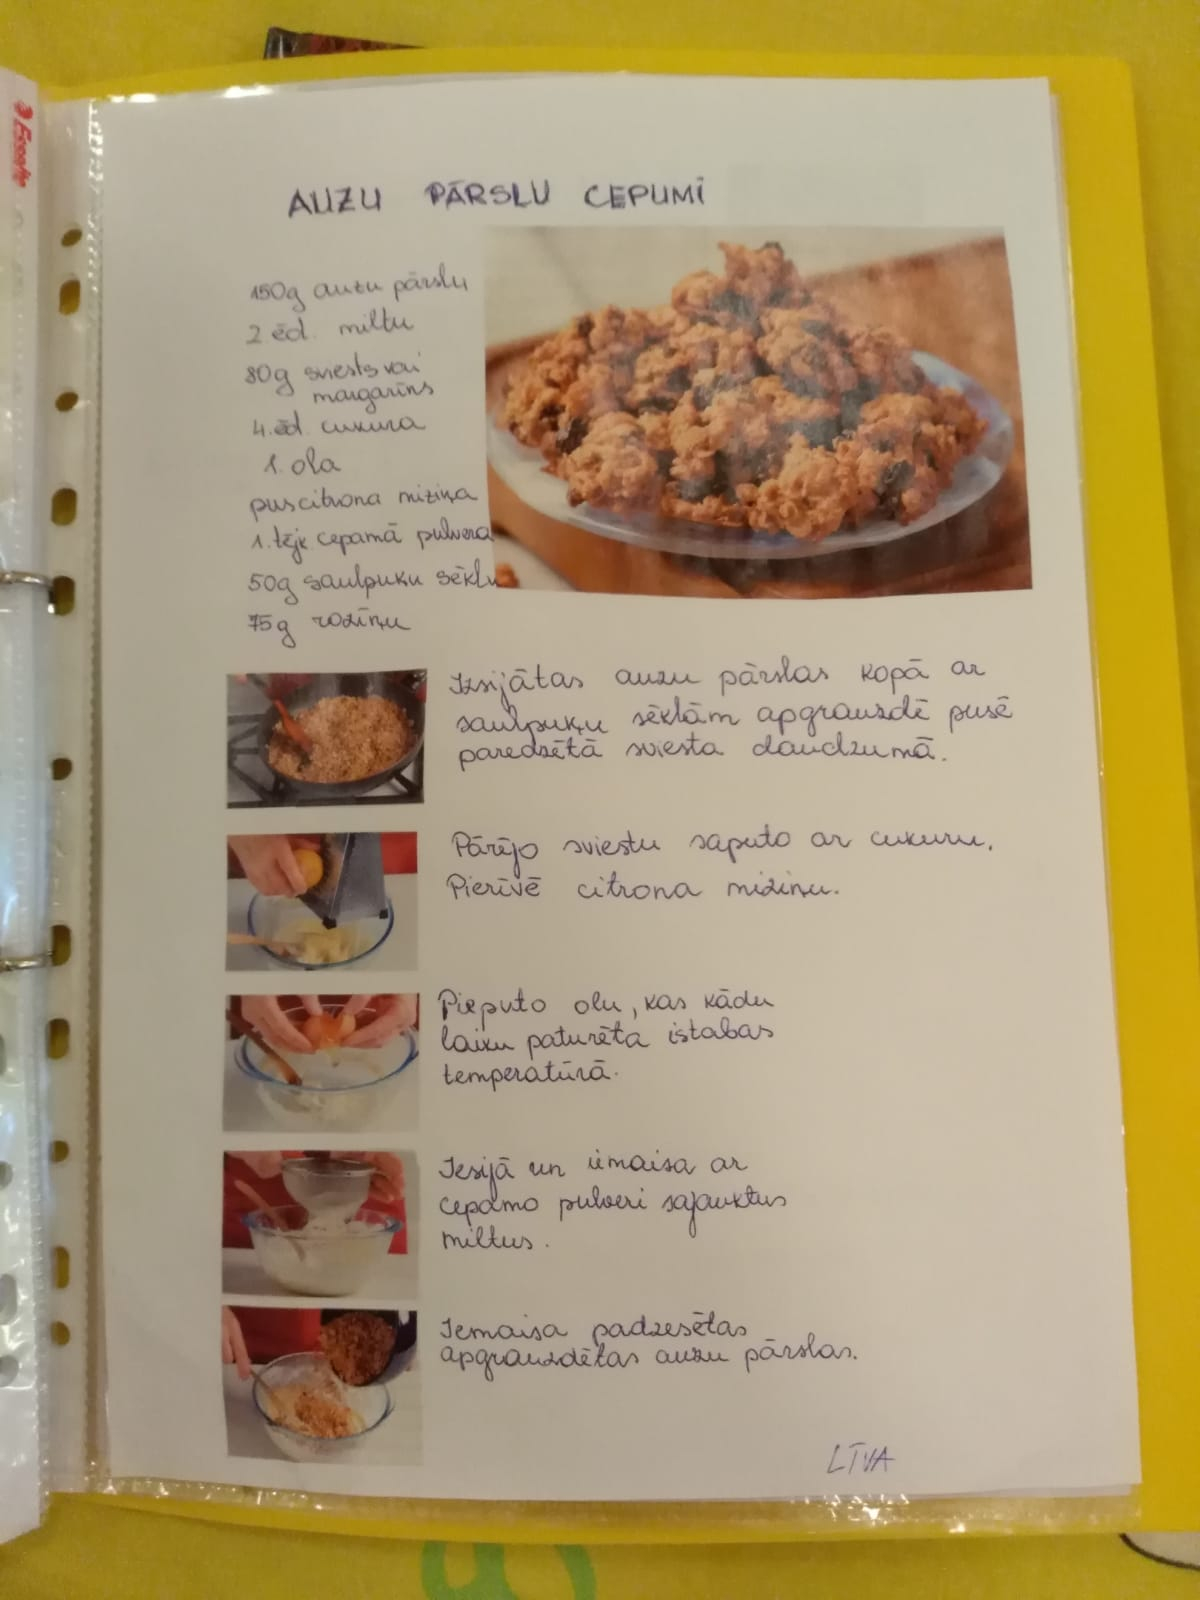 Esselte
AUZU PĀRSLU CEPUMI
150g auzu pārslu
2.ēd. miltu
80g sviests vai
margarīns
4.ēd. cukura
1. ola
puscitrona miziņa
1. tējk. cepamā pulvera
50g saulpuķu sēklu
75g rozīņu
Izsijātas auzu pārslas kopā ar
saulpuķu sēklām apgrauzdē pusē
paredzētā sviesta daudzumā.
Pārējo sviestu saputo ar cukuru.
Pierīvē citrona miziņu.
Pieputo olu, kas kādu
laiku paturēta istabas
temperatūrā.
Iesijā un iemaisa ar
cepamo pulveri sajauktus
miltus.
Iemaisa padzesētas
apgrauzdētas auzu pārslas.
LĪVA